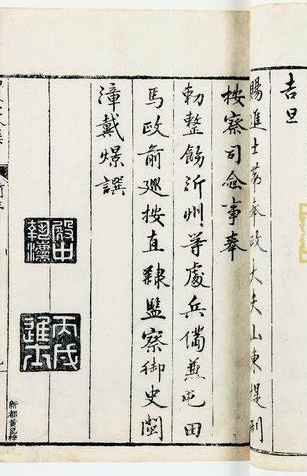 吉旦
賜進士第奉政大夫山東提刑
按察司僉事奉
勑整飭沂州等處兵備兼屯田
馬政前巡按直隸監察御史閩
漳戴燝譔
殿中執灋
丙戌進士
新都黃